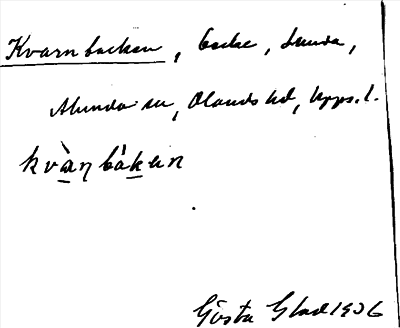 Kvarnbacken, backe, Lunda,
Alunda sn, Olands hd, Upps. l.
kvàṇbàken
Gösta Glad 1906